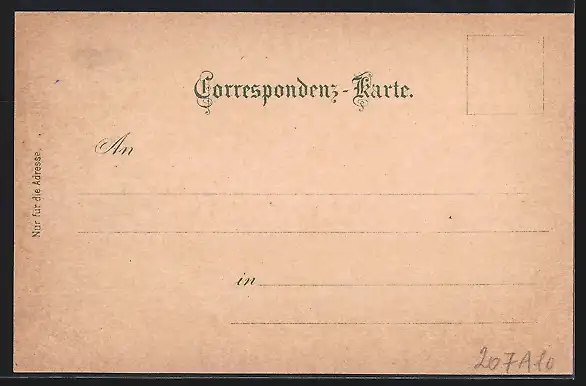 Correspondenz-Karte.
An
in
Nur für die Adresse.
207A10